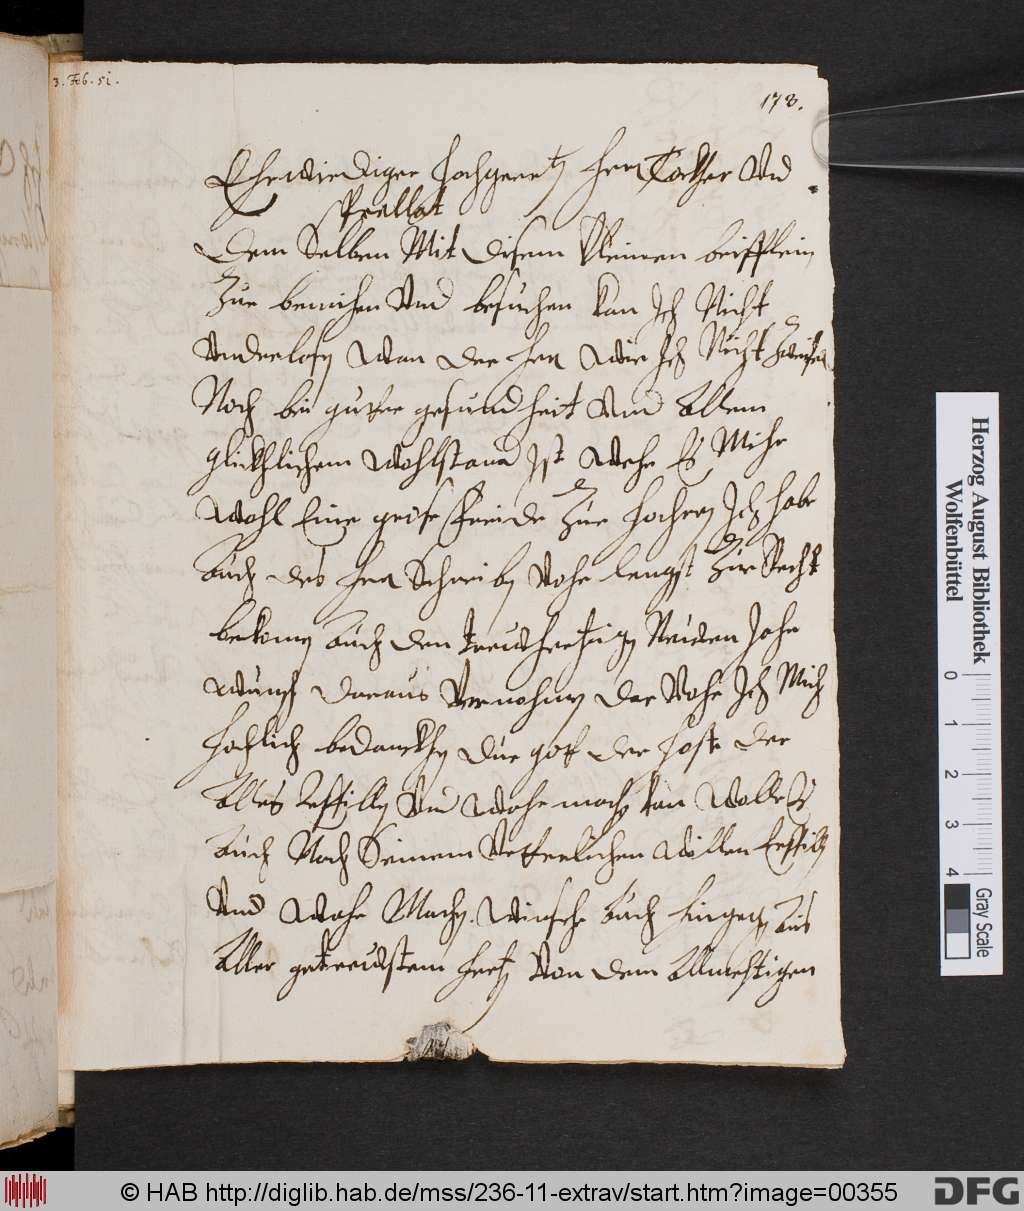 3. Feb. 51.
178.
Ehrwirdiger hochgeert herr Tockter Vnd
Prellat
Dem Selben Mit disem kleinen briefflein
Zue bemihen Vnd besuchen kan Ich Nicht
Vnderlasen Wan der her Wie Ich Nicht Zweifel
Noch bei gutter gesundheit Vnd Allem
glickhlichem Wohlstand Ist Wehr Es Mihr
Wohl Eine grose Freide Zue hören Ich habe
Auch des hern Schreiben lengst Zue Recht
bekomen Auch den treuhertzigen Neuen Jahr
Wunsch daraus Vernohmen dar Ich Mich
hochlich bedanckhen due gott der der
Alles Vnd Wahr machen kan Wolle Es
Auch Nach Seinem Vetterlichen Willen
Vnd Wahr Machen. Winsche Auch hingegen Aus
Aller getreusten hertzen Von dem Allmechtigen
Herzog August Bibliothek
Wolfenbüttel
0 1 2 3 4
Gray Scale
© HAB http://diglib.hab.de/mss/236-11-extrav/start.htm?image=00355
DFG